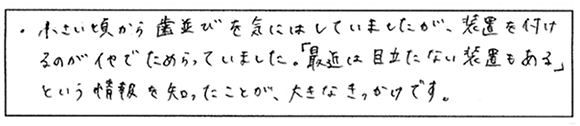 ・小さい頃から歯並びを気にはしていましたが、装置を付け
るのがイヤでためらっていました。「最近は目立たない装置もある」
という情報を知ったことが、大きなきっかけです。